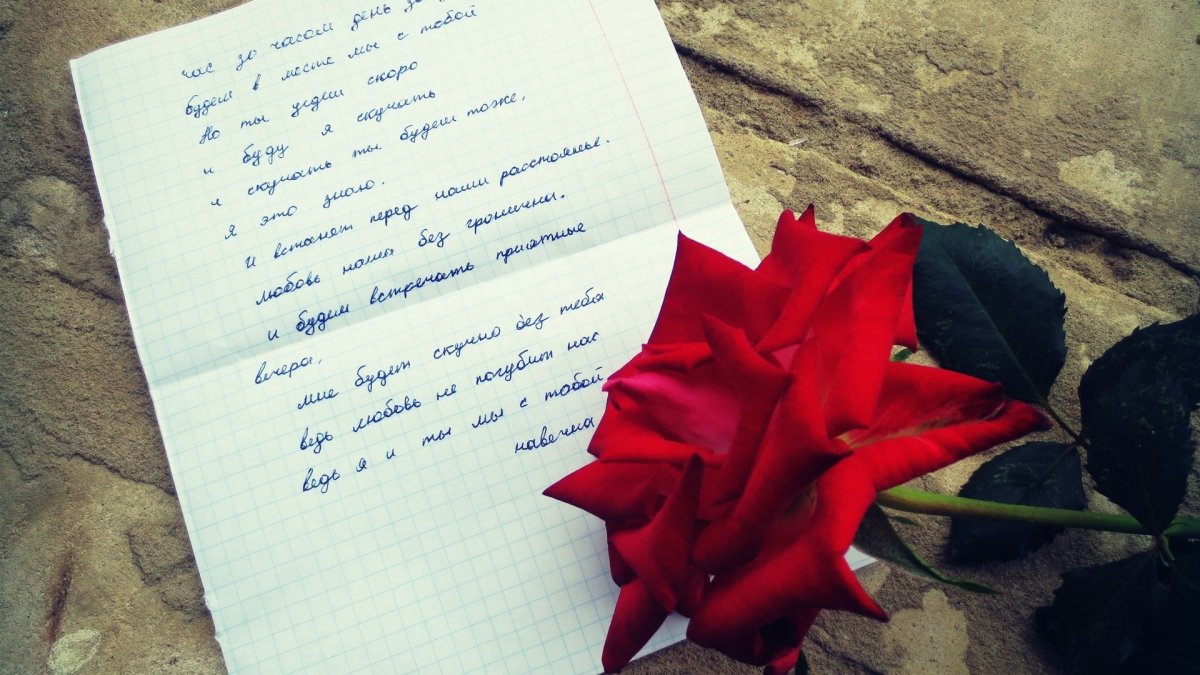 час за часом день за
будем в месте мы с тобой
Но ты уедеш скоро
и буду я скучать
и скучать ты будеш тоже,
я это знаю.
И встанет перед нами расстоянье.
любовь наша без граничны.
и будем встречать приятные
вечера,
мне будет скучно без тебя
ведь любовь не погубит нас
ведь я и ты мы с тобой
навечна